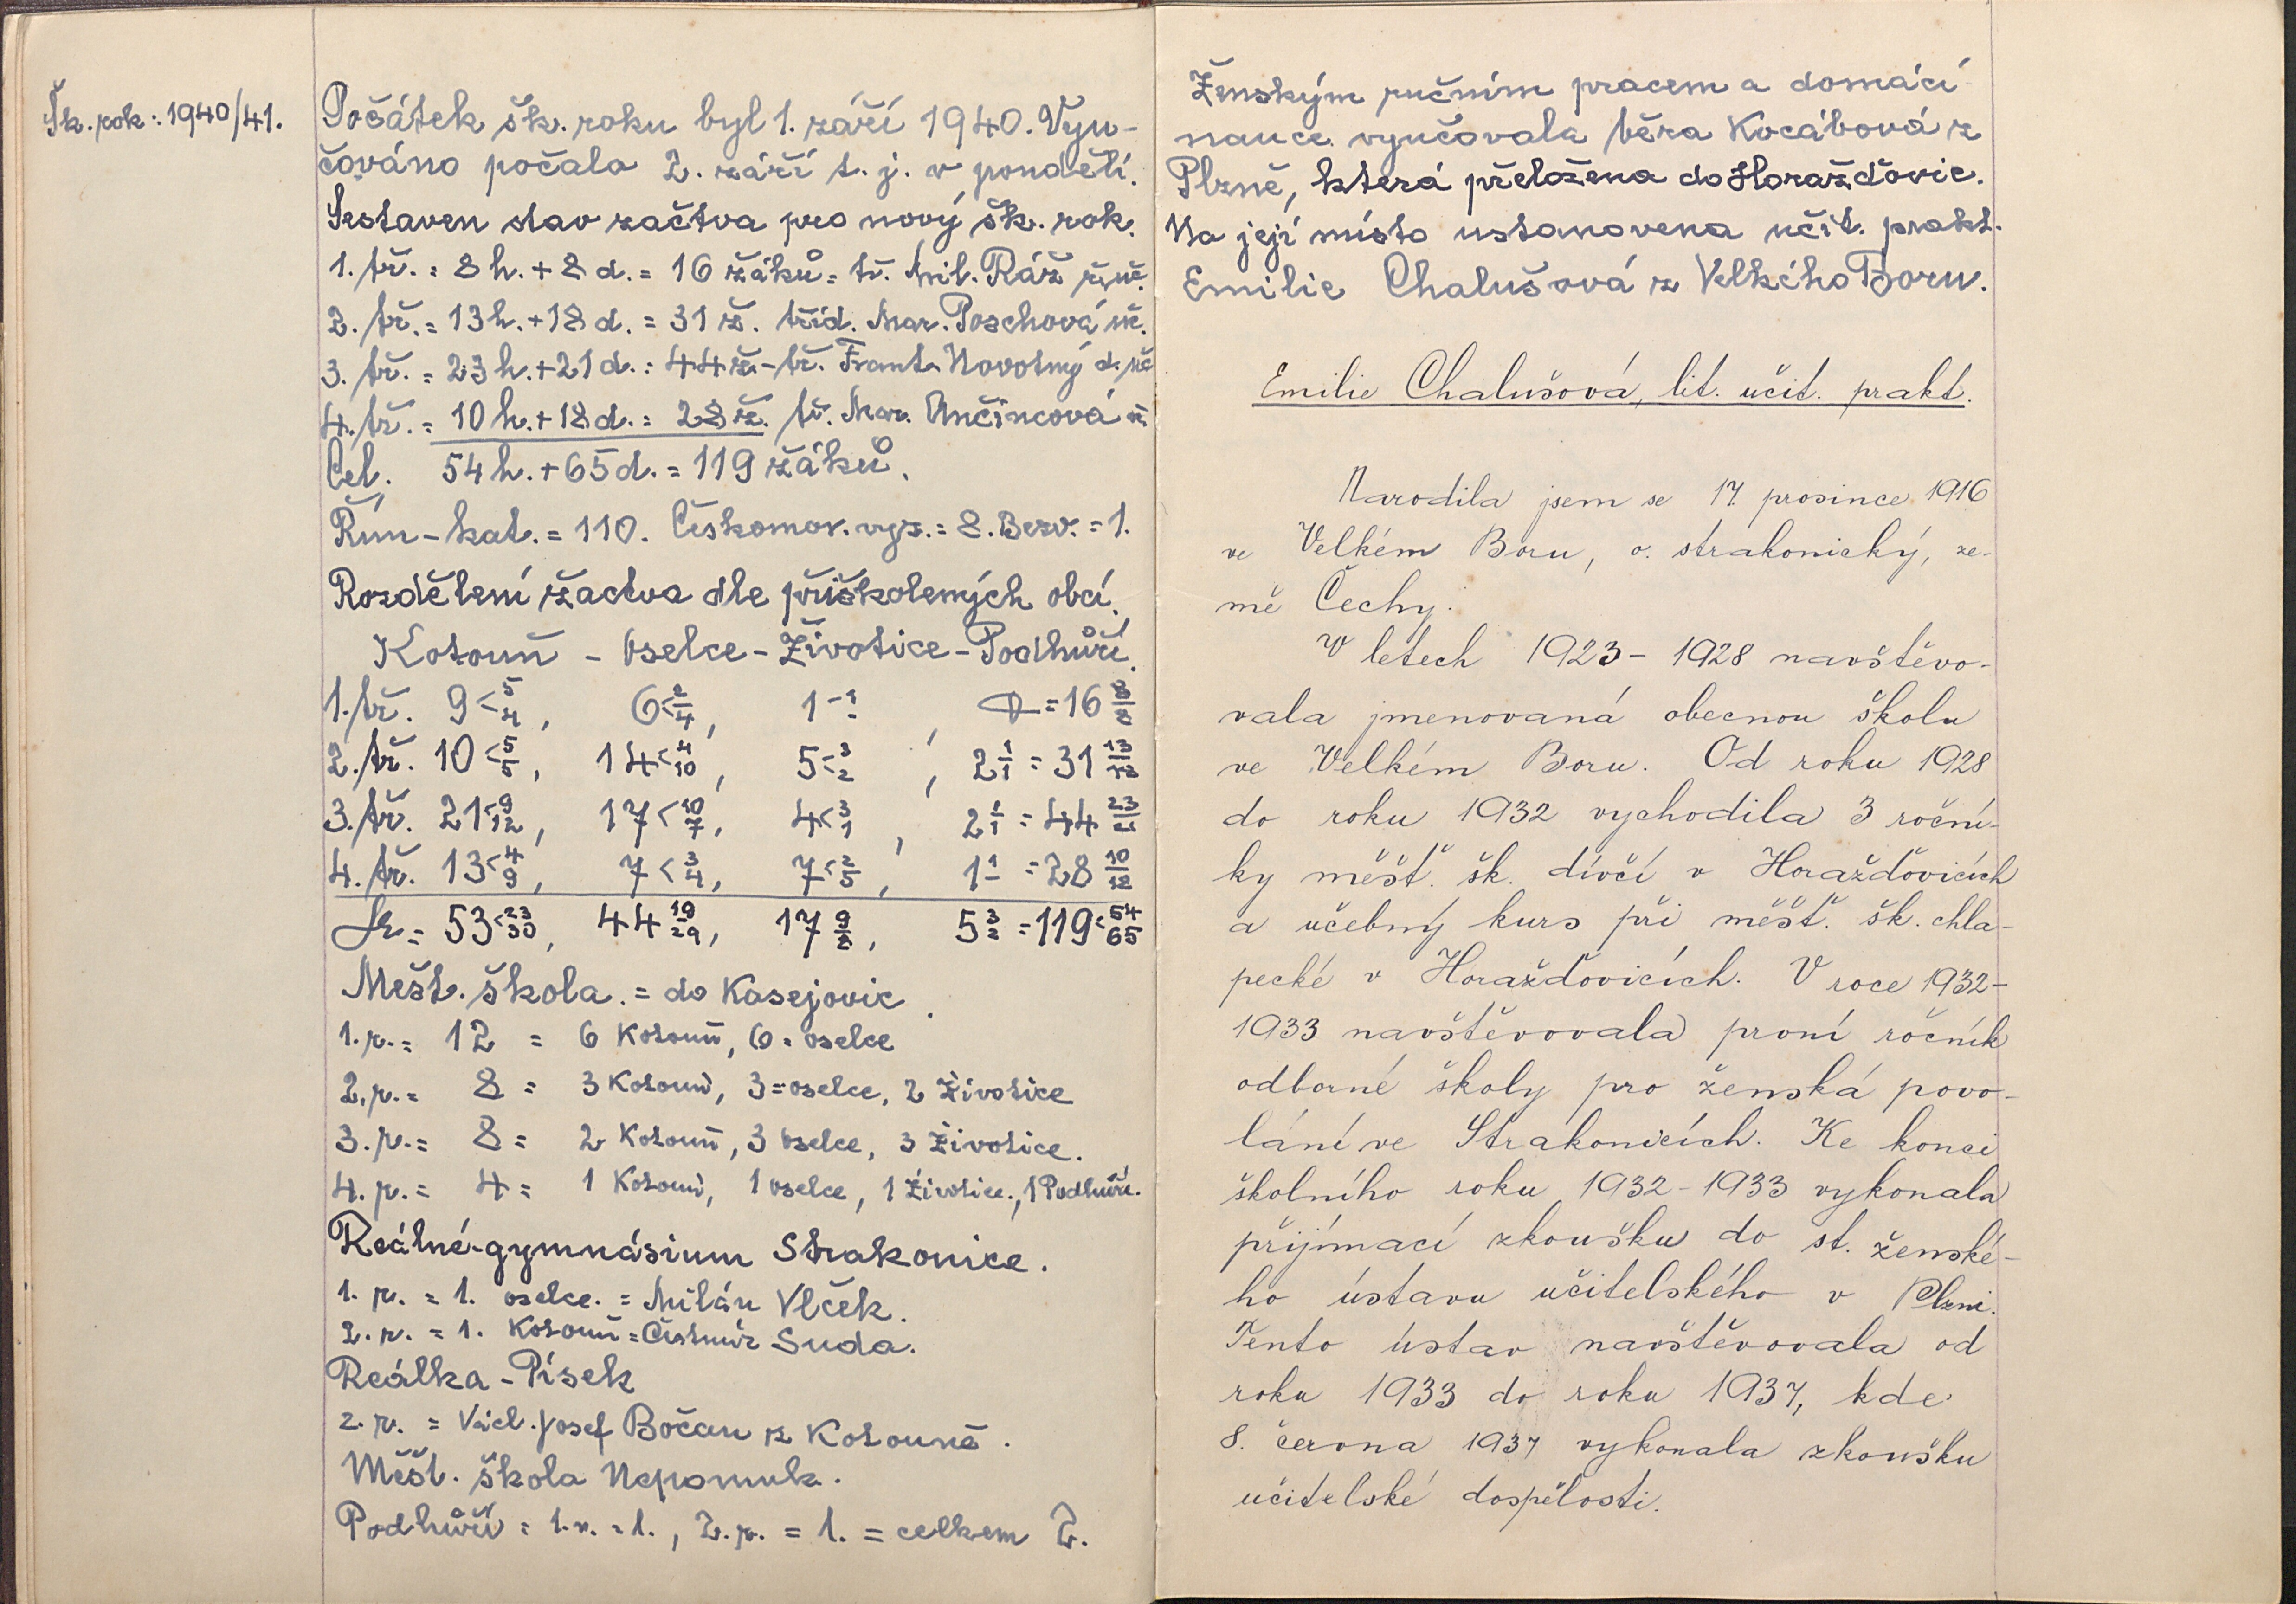 Šk. rok: 1940/41.
Počátek šk. roku byl 1. září 1940. Vyu-
čováno počalo 2. září t. j. v pondělí.
Sestaven stav začtva pro nový šk. rok.
1. tř. = 8 h. + 8 d. = 16 žáků = tř. Mil. Ráž ř. uč.
2. tř. = 13 h. + 18 d. = 31 ž. tříd. Mar. Poschová uč.
3. tř. = 23 h. + 21 d. = 44 ž. - tř. Frant. Novotný d. uč
4. tř. = 10 h. + 18 d. = 28 ž. tř. Mar. Unčincová
Cel. 54 h. + 65 d. = 119 žáků.
Řím-kat. = 110. Českomor. vyz. = 8. Bezv. = 1.
Rozdělení žactva dle přiškolených obcí.
Kotouň - Oselce - Životice - Podhůří.
1. tř. 9 < 5/4, 6 < 2/4, 1 - 1/-, 0 = 16 8/8
2. tř. 10 < 5/5, 14 < 4/10, 5 < 3/2, 2 1/1 = 31 13/18
3. tř. 21 < 9/12, 17 < 10/7, 4 < 3/1, 2 1/1 = 44 23/21
4. tř. 13 < 4/9, 7 < 3/4, 7 < 2/5, 1 1/- = 28 10/18
53 < 23/30, 44 19/29, 17 9/8, 5 3/2 = 119 < 54/65
Mešt. škola. = do Kasejovic.
1. r. = 12 = 6 Kotouň, 6 = oselce
2. r. = 8 = 3 Kotouň, 3 = oselce, 2 Životice
3. r. = 8 = 2 Kotouň, 3 oselce, 3 Životice.
4. r. = 4 = 1 Kotouň, 1 oselce, 1 Životice., 1 Podhůří.
Reálné-gymnásium Strakonice.
1. r. = 1. oselce. = Milán Vlček.
2. r. = 1. Kotouň = Čestmír Suda.
Reálka - Písek
2. r. = Václ. Josef Bočan z Kotouně.
Měšt. škola Nepomuk.
Podhůří = 1. r. = 1., 2. r. = 1. = celkem 2.
Ženským ručním pracem a domácí
nauce vyučovala Věra Kocábová z
Plzně, která přeložena do Horažďovic.
Na její místo ustanovena učit. prakt.
Emilie Chalušová z Velkého Boru.
Emilie Chalušová, lit. učit. prakt.
Narodila jsem se 17. prosince 1916
ve Velkém Boru, o. strakonický, ze-
mě Čechy.
V letech 1923 - 1928 navštěvo-
vala jmenovaná obecnou školu
ve Velkém Boru. Od roku 1928
do roku 1932 vychodila 3 roční-
ky měšť. šk. dívčí v Horažďovicích
a učebný kurs při měšť. šk. chla-
pecké v Horažďovicích. V roce 1932-
1933 navštěvovala první ročník
odborné školy pro ženská povo-
lání ve Strakonicích. Ke konci
školního roku 1932 - 1933 vykonala
přijímací zkoušku do st. ženské-
ho ústavu učitelského v Plzni.
Tento ústav navštěvovala od
roku 1933 do roku 1937, kde
8. června 1937 vykonala zkoušku
učitelské dospělosti.